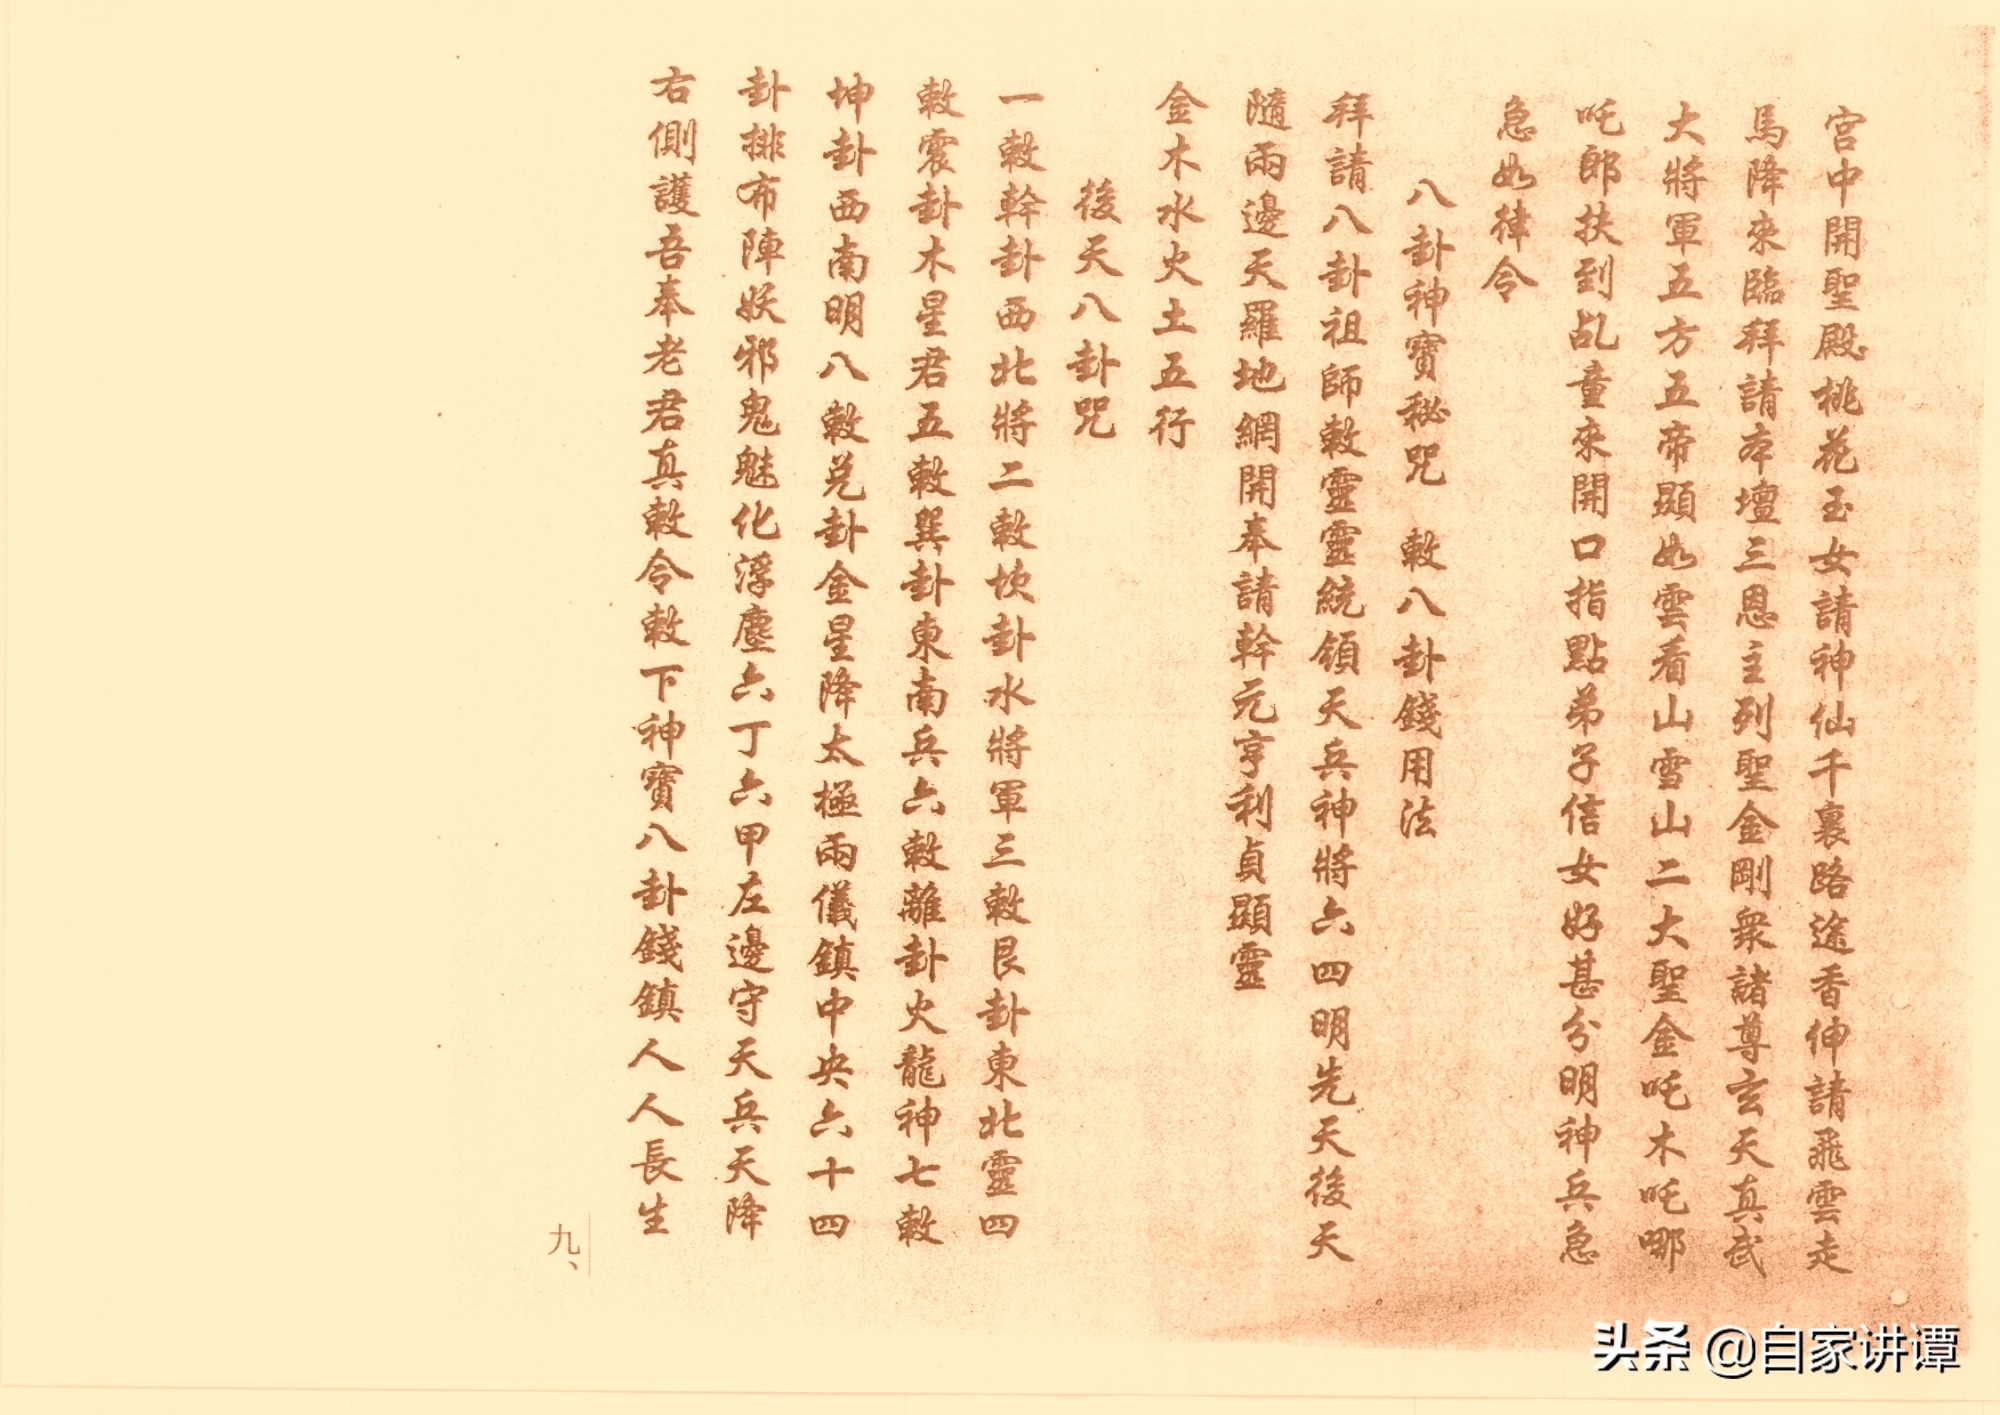 宮中開聖殿桃花玉女請神仙千裏路途香伸請飛雲走
馬降來臨拜請本壇三恩主列聖金剛衆諸尊玄天真武
大將軍五方五帝顯如雲看山雪山二大聖金吒木吒哪
吒郎扶到乩童來開口指點弟子信女好甚分明神兵急
急如律令
八卦神寶秘咒 敕八卦錢用法
拜請八卦祖師敕靈靈統領天兵神將六四明先天後天
隨兩邊天羅地網開奉請幹元亨利貞顯靈
金木水火土五行
後天八卦咒
一敕幹卦西北將二敕坎卦水將軍三敕艮卦東北靈四
敕震卦木星君五敕巽卦東南兵六敕離卦火龍神七敕
坤卦西南明八敕兌卦金星降太極兩儀鎮中央六十四
卦排布陣妖邪鬼魅化浮塵六丁六甲左邊守天兵天降
右側護吾奉老君真敕令敕下神寶八卦錢鎮人人長生
九、
头条 @自家讲谭